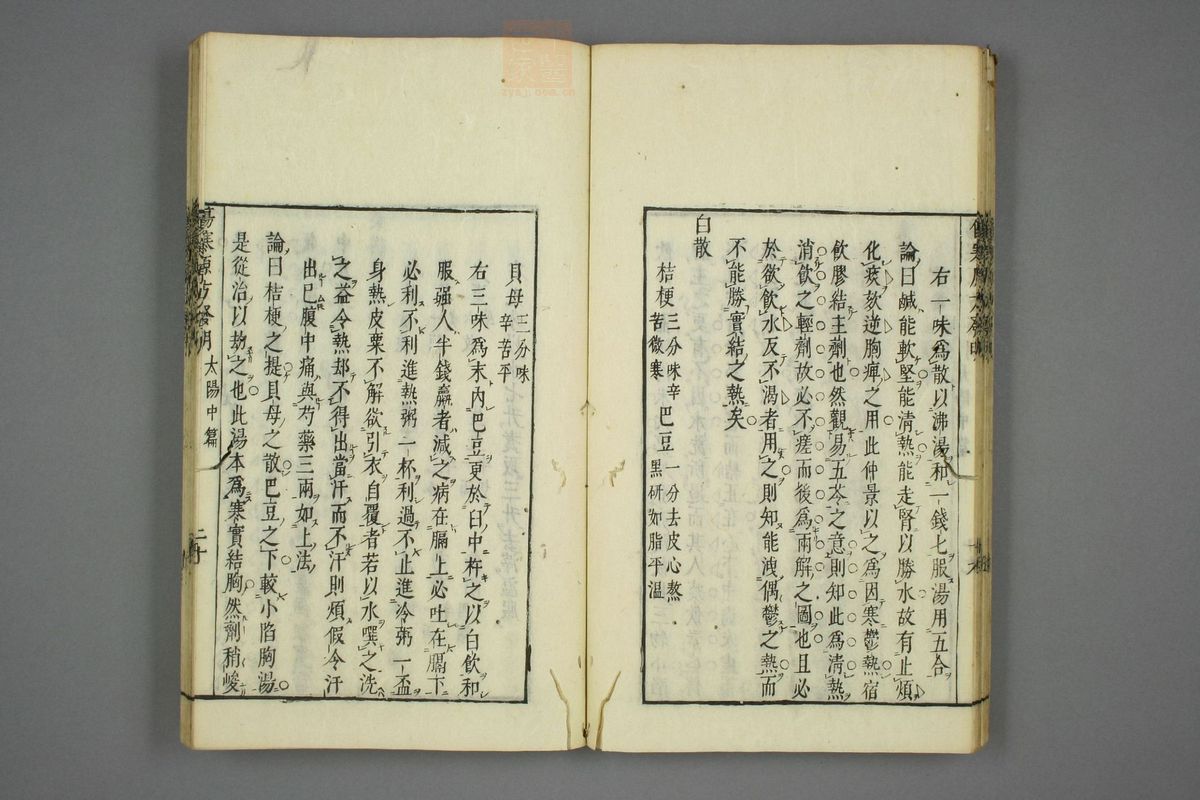 右一味爲散以沸湯和一錢七服湯用五合
論曰鹹能軟堅能淸熱能走腎以勝水故有止煩
化痰欬逆胸痺之用此仲景以之爲因寒鬱熱宿
飮膠結主劑也然觀易五苓之意則知此爲淸熱
消飮之輕劑故必不瘥而後爲兩解之圖也且必
於欲飮水反不渴者用之則知能洩偶鬱之熱而
不能勝實結之熱矣
白散
桔梗 三分味辛苦微寒 巴豆 一分去皮心熬黑研如脂平溫
貝母 三分味辛苦平
右三味爲末內巴豆更於臼中杵之以白飮和
服强人半錢羸者減之病在膈上必吐在膈下
必利不利進熱粥一杯利過不止進冷粥一盃
身熱皮粟不解欲引衣自覆者若以水噀之洗
之益令熱却不得出當汗而不汗則煩假令汗
出已腹中痛與芍藥三兩如上法
論曰桔梗之提貝母之散巴豆之下較小陷胸湯
是從治以劫之也此湯本爲寒實結胸然劑稍峻
傷寒源方發明 太陽中篇 二十
zysj.com.cn